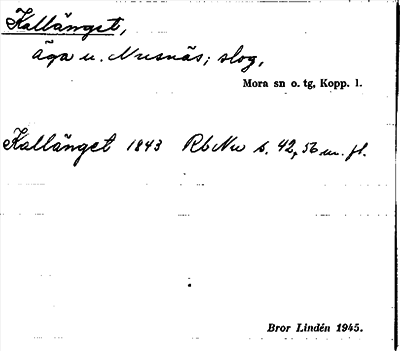 Kallänget,
äga u. Nusnäs; slog,
Mora sn o. tg, Kopp. l.
Kallänget 1843 RbNu s. 42, 56 m. fl.
Bror Lindén 1945.